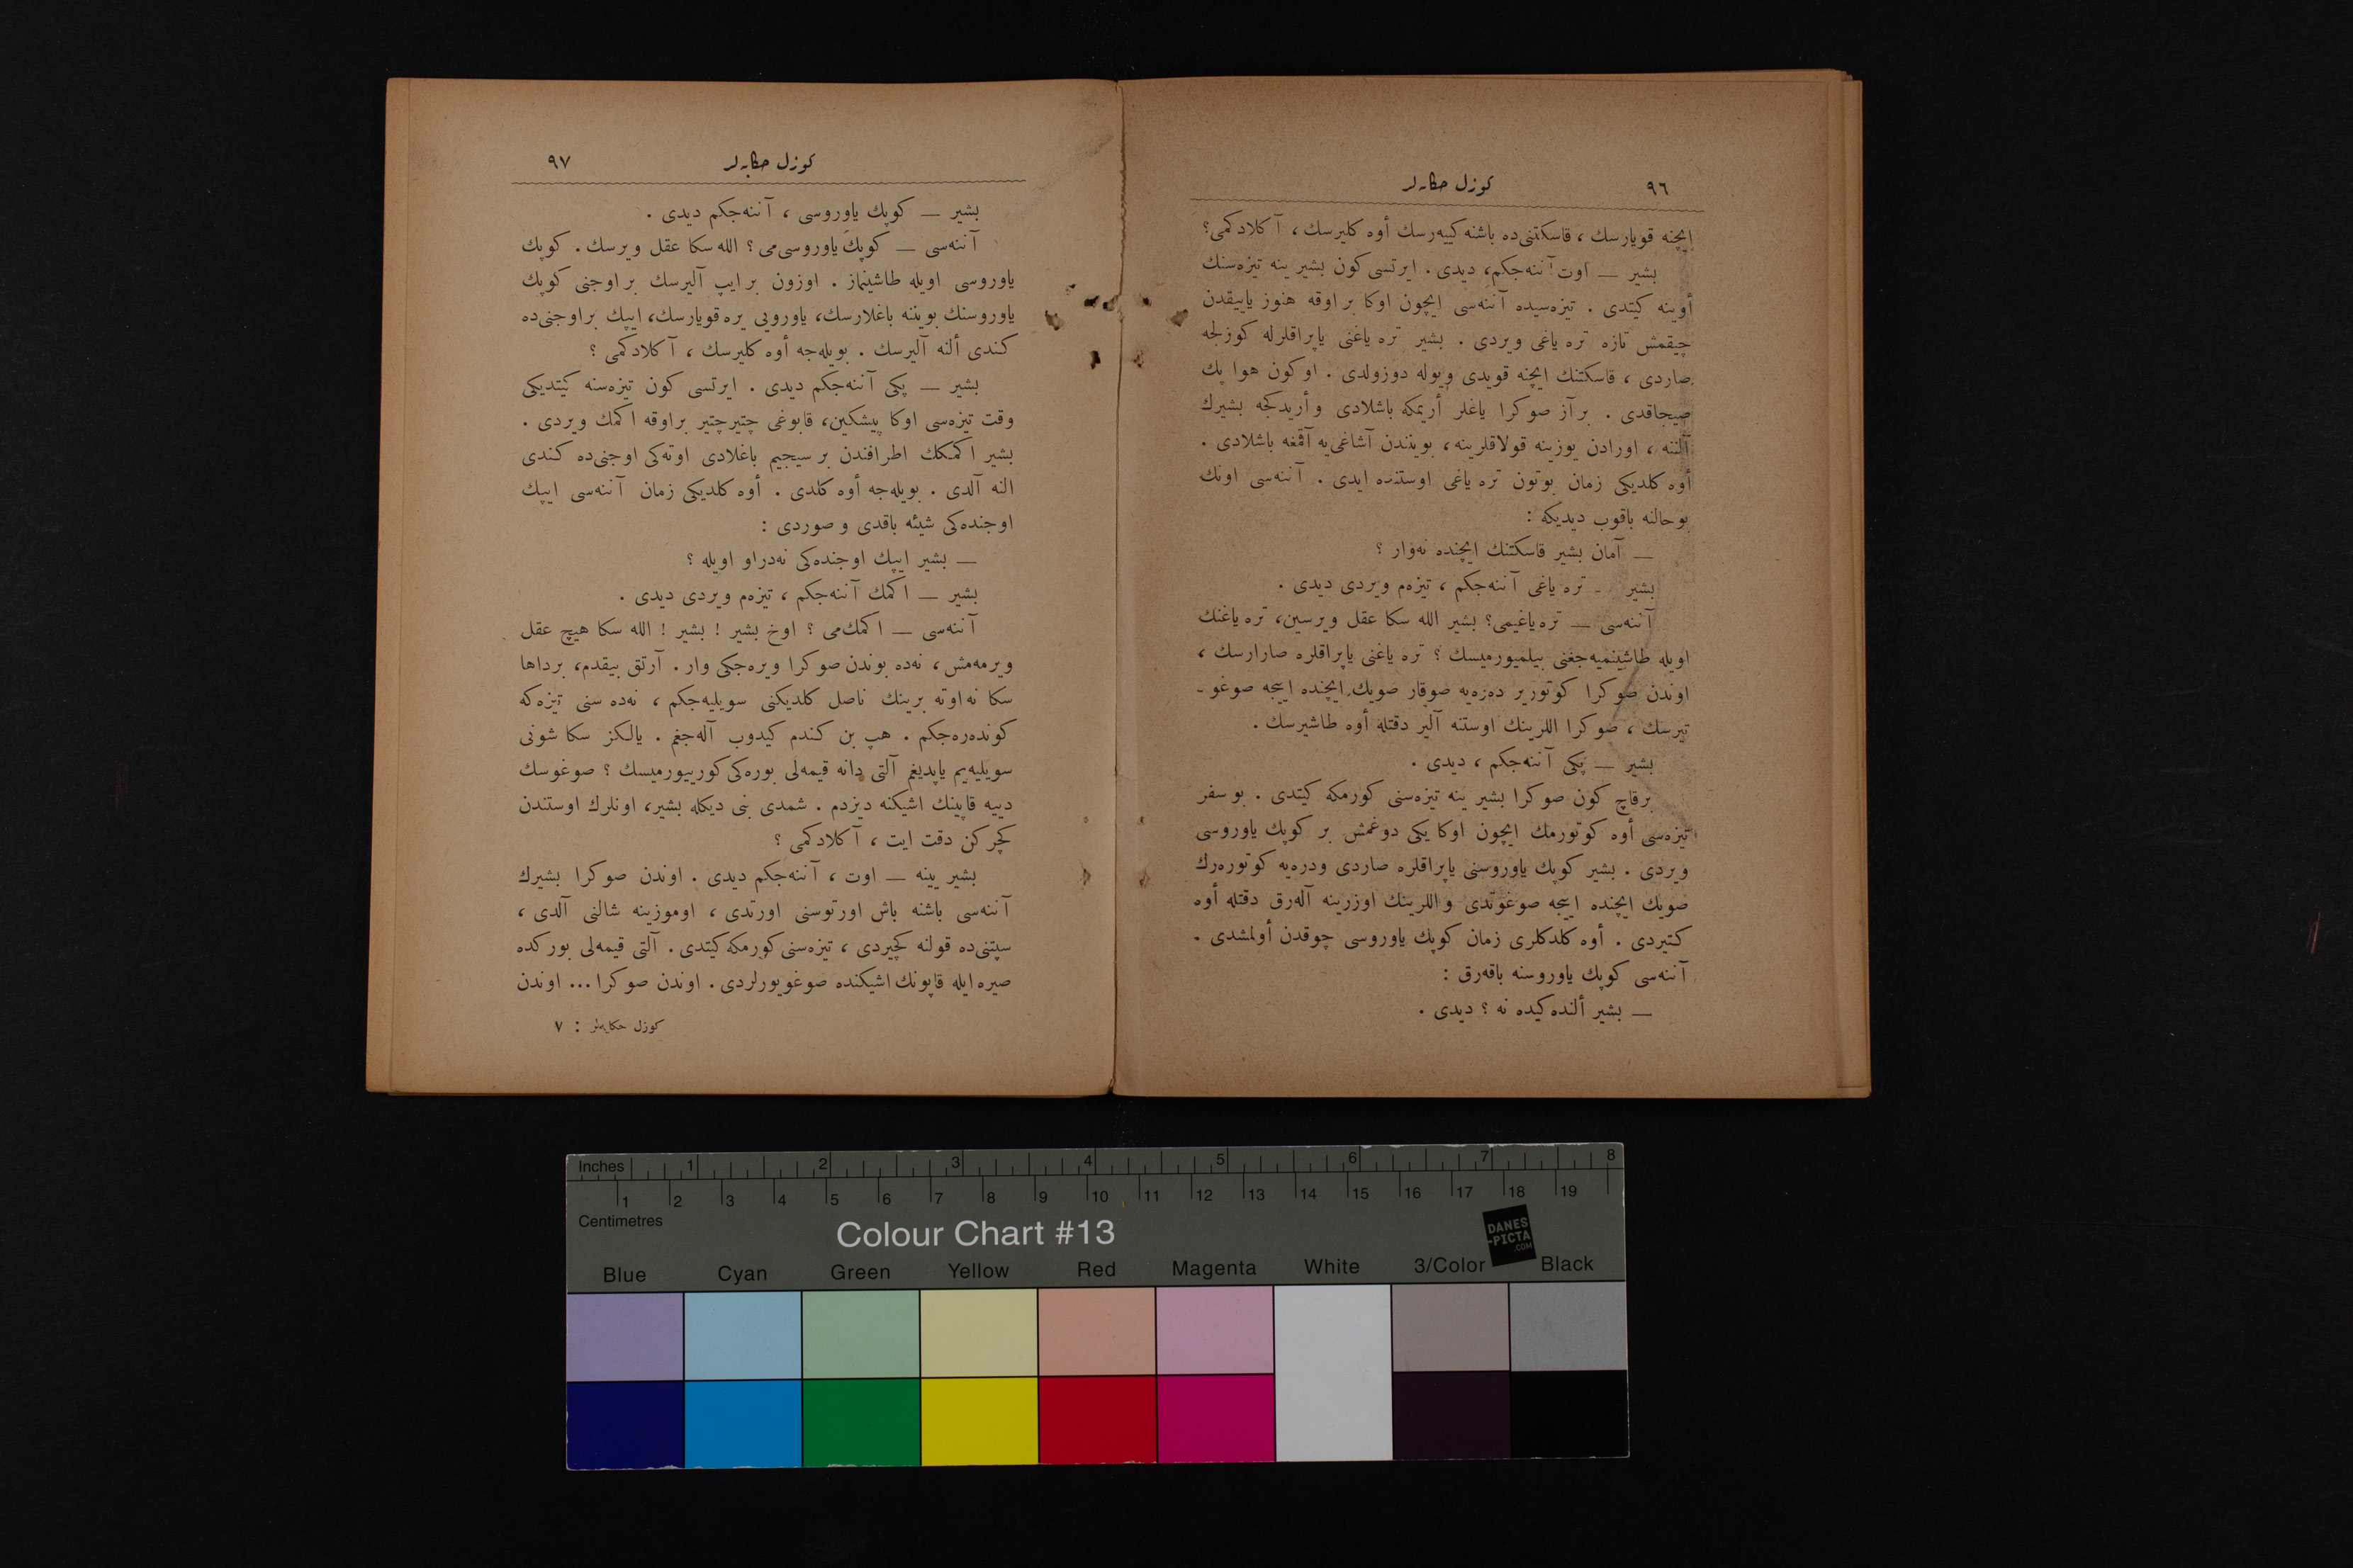 ٩٦
كوزل حكايه‌لر
ايچنه قويارسك ، قاسكتنی‌ده باشنه كييه‌رسك أوه كليرسك ، آ كلادكمی؟
بشير — اوت آننه‌جكم، ديدی . ايرتسی كون بشير ينه تيزه‌سنك
أوينه كيتدی . تيزه‌سيده آننه‌سی ايچون اوكا بر اوقه هنوز ياييقدن
چيقمش تازه تره ياغی ويردی . بشير تره ياغنی ياپراقلرله كوزلجه
صاردی ، قاسكتنك ايچنه قويدی ويوله دوزولدی . اوكون هوا پك
صيجاقدی . بر آز صوكرا ياغلر أريمكه باشلادی و أريدكجه بشيرك
آلننه ، اورادن يوزينه قولاقلرينه ، بويندن آشاغی‌يه آقمغه باشلادی .
أوه كلديكی زمان بوتون تره ياغی اوستنده ايدی . آننه‌سی اونك
بوحالنه باقوب ديديكه :
— آمان بشير قاسكتنك ايچنده نه‌وار ؟
بشير - تره ياغی آننه‌جكم ، تيزه‌م ويردی ديدی .
آننه‌سی — تره‌ياغيمی؟ بشير الله سكا عقل ويرسين، تره ياغنك
اويله طاشينميه‌جغنی بيلميورميسك ؟ تره ياغنی ياپراقلره صارارسك ،
اوندن صوكرا كوتورير ده‌ره‌يه صوقار صويك ايچنده اييجه صوغو -
تيرسك ، صوكرا اللرينك اوستنه آلير دقتله أوه طاشيرسك .
بشير — پكی آننه‌جكم ، ديدی .
برقاچ كون صوكرا بشير ينه تيزه‌سنی كورمكه كيتدی . بو سفر
تيزه‌سی أوه كوتورمك ايچون اوكا يكی دوغمش بر كوپك ياوروسی
ويردی . بشير كوپك ياوروسنی ياپراقلره صاردی ودره‌يه كوتوره‌رك
صويك ايچنده اييجه صوغوتدی و اللرينك اوزرينه آله‌رق دقتله أوه
كتيردی . أوه كلدكلری زمان كوپك ياوروسی چوقدن أولمشدی .
آننه‌سی كوپك ياوروسنه باقه‌رق :
— بشير ألنده‌كيده نه ؟ ديدی .
كوزل حكايه‌لر
٩٧
بشير — كوپك ياوروسی ، آننه‌جكم ديدی .
آننه‌سی — كوپك ياوروسی‌می ؟ الله سكا عقل ويرسك . كوپك
ياوروسی اويله طاشينماز . اوزون بر ايپ آليرسك بر اوجنی كوپك
ياوروسنك بويننه باغلارسك، ياورويی يره قويارسك، ايپك بر اوجنی‌ده
كندی ألنه آليرسك . بويله‌جه أوه كليرسك ، آ كلادكمی ؟
بشير — پكی آننه‌جكم ديدی . ايرتسی كون تيزه‌سنه كيتديكی
وقت تيزه‌سی اوكا پيشكين، قابوغی چتيرچتير براوقه اكمك ويردی .
بشير اكمكك اطرافندن بر سيجيم باغلادی اوته‌كی اوجنی‌ده كندی
النه آلدی . بويله‌جه أوه كلدی . أوه كلديكی زمان آننه‌سی ايپك
اوجنده‌كی شيئه باقدی و صوردی :
— بشير ايپك اوجنده‌كی نه‌دراو اويله ؟
بشير — اكمك آننه‌جكم ، تيزه‌م ويردی ديدی .
آننه‌سی — اكمك‌می ؟ اوخ بشير ! بشير ! الله سكا هيچ عقل
ويرمه‌مش ، نه‌ده بوندن صوكرا ويره‌جكی وار . آرتق بيقدم، برداها
سكا نه اوته برينك ناصل كلديكنی سويليه‌جكم ، نه‌ده سنی تيزه‌كه
كونده‌ره‌جكم . هپ بن كندم كيدوب آله‌جغم . يالكز سكا شونی
سويليه‌يم ياپديغم آلتی دانه قيمه‌لی بوره‌كی كورييورميسك ؟ صوغوسك
دييه قاپينك اشيكنه ديزدم . شمدی بنی ديكله بشير، اونلرك اوستندن
كچركن دقت ايت ، آ كلادكمی ؟
بشير يينه — اوت ، آننه‌جكم ديدی . اوندن صوكرا بشيرك
آننه‌سی باشنه باش اورتوسنی اورتدی ، اوموزينه شالنی آلدی ،
سپتنی‌ده قولنه كچيردی ، تيزه‌سنی كورمكه كيتدی . آلتی قيمه‌لی بوركده
صيره ايله قاپونك اشيكنده صوغويورلردی . اوندن صوكرا ... اوندن
كوزل حكايه‌لر : ٧
Inches 1 2 3 4 5 6 7 8
1 2 3 4 5 6 7 8 9 10 11 12 13 14 15 16 17 18 19
Centimetres
Colour Chart #13
DANES
-PICTA
.COM
Blue Cyan Green Yellow Red Magenta White 3/Color Black